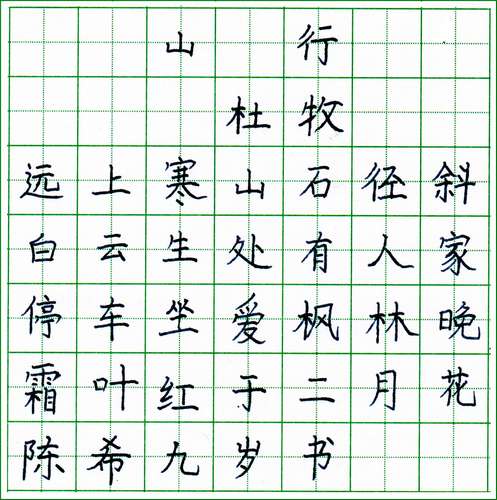 山行
杜牧
远上寒山石径斜
白云生处有人家
停车坐爱枫林晚
霜叶红于二月花
陈希九岁书